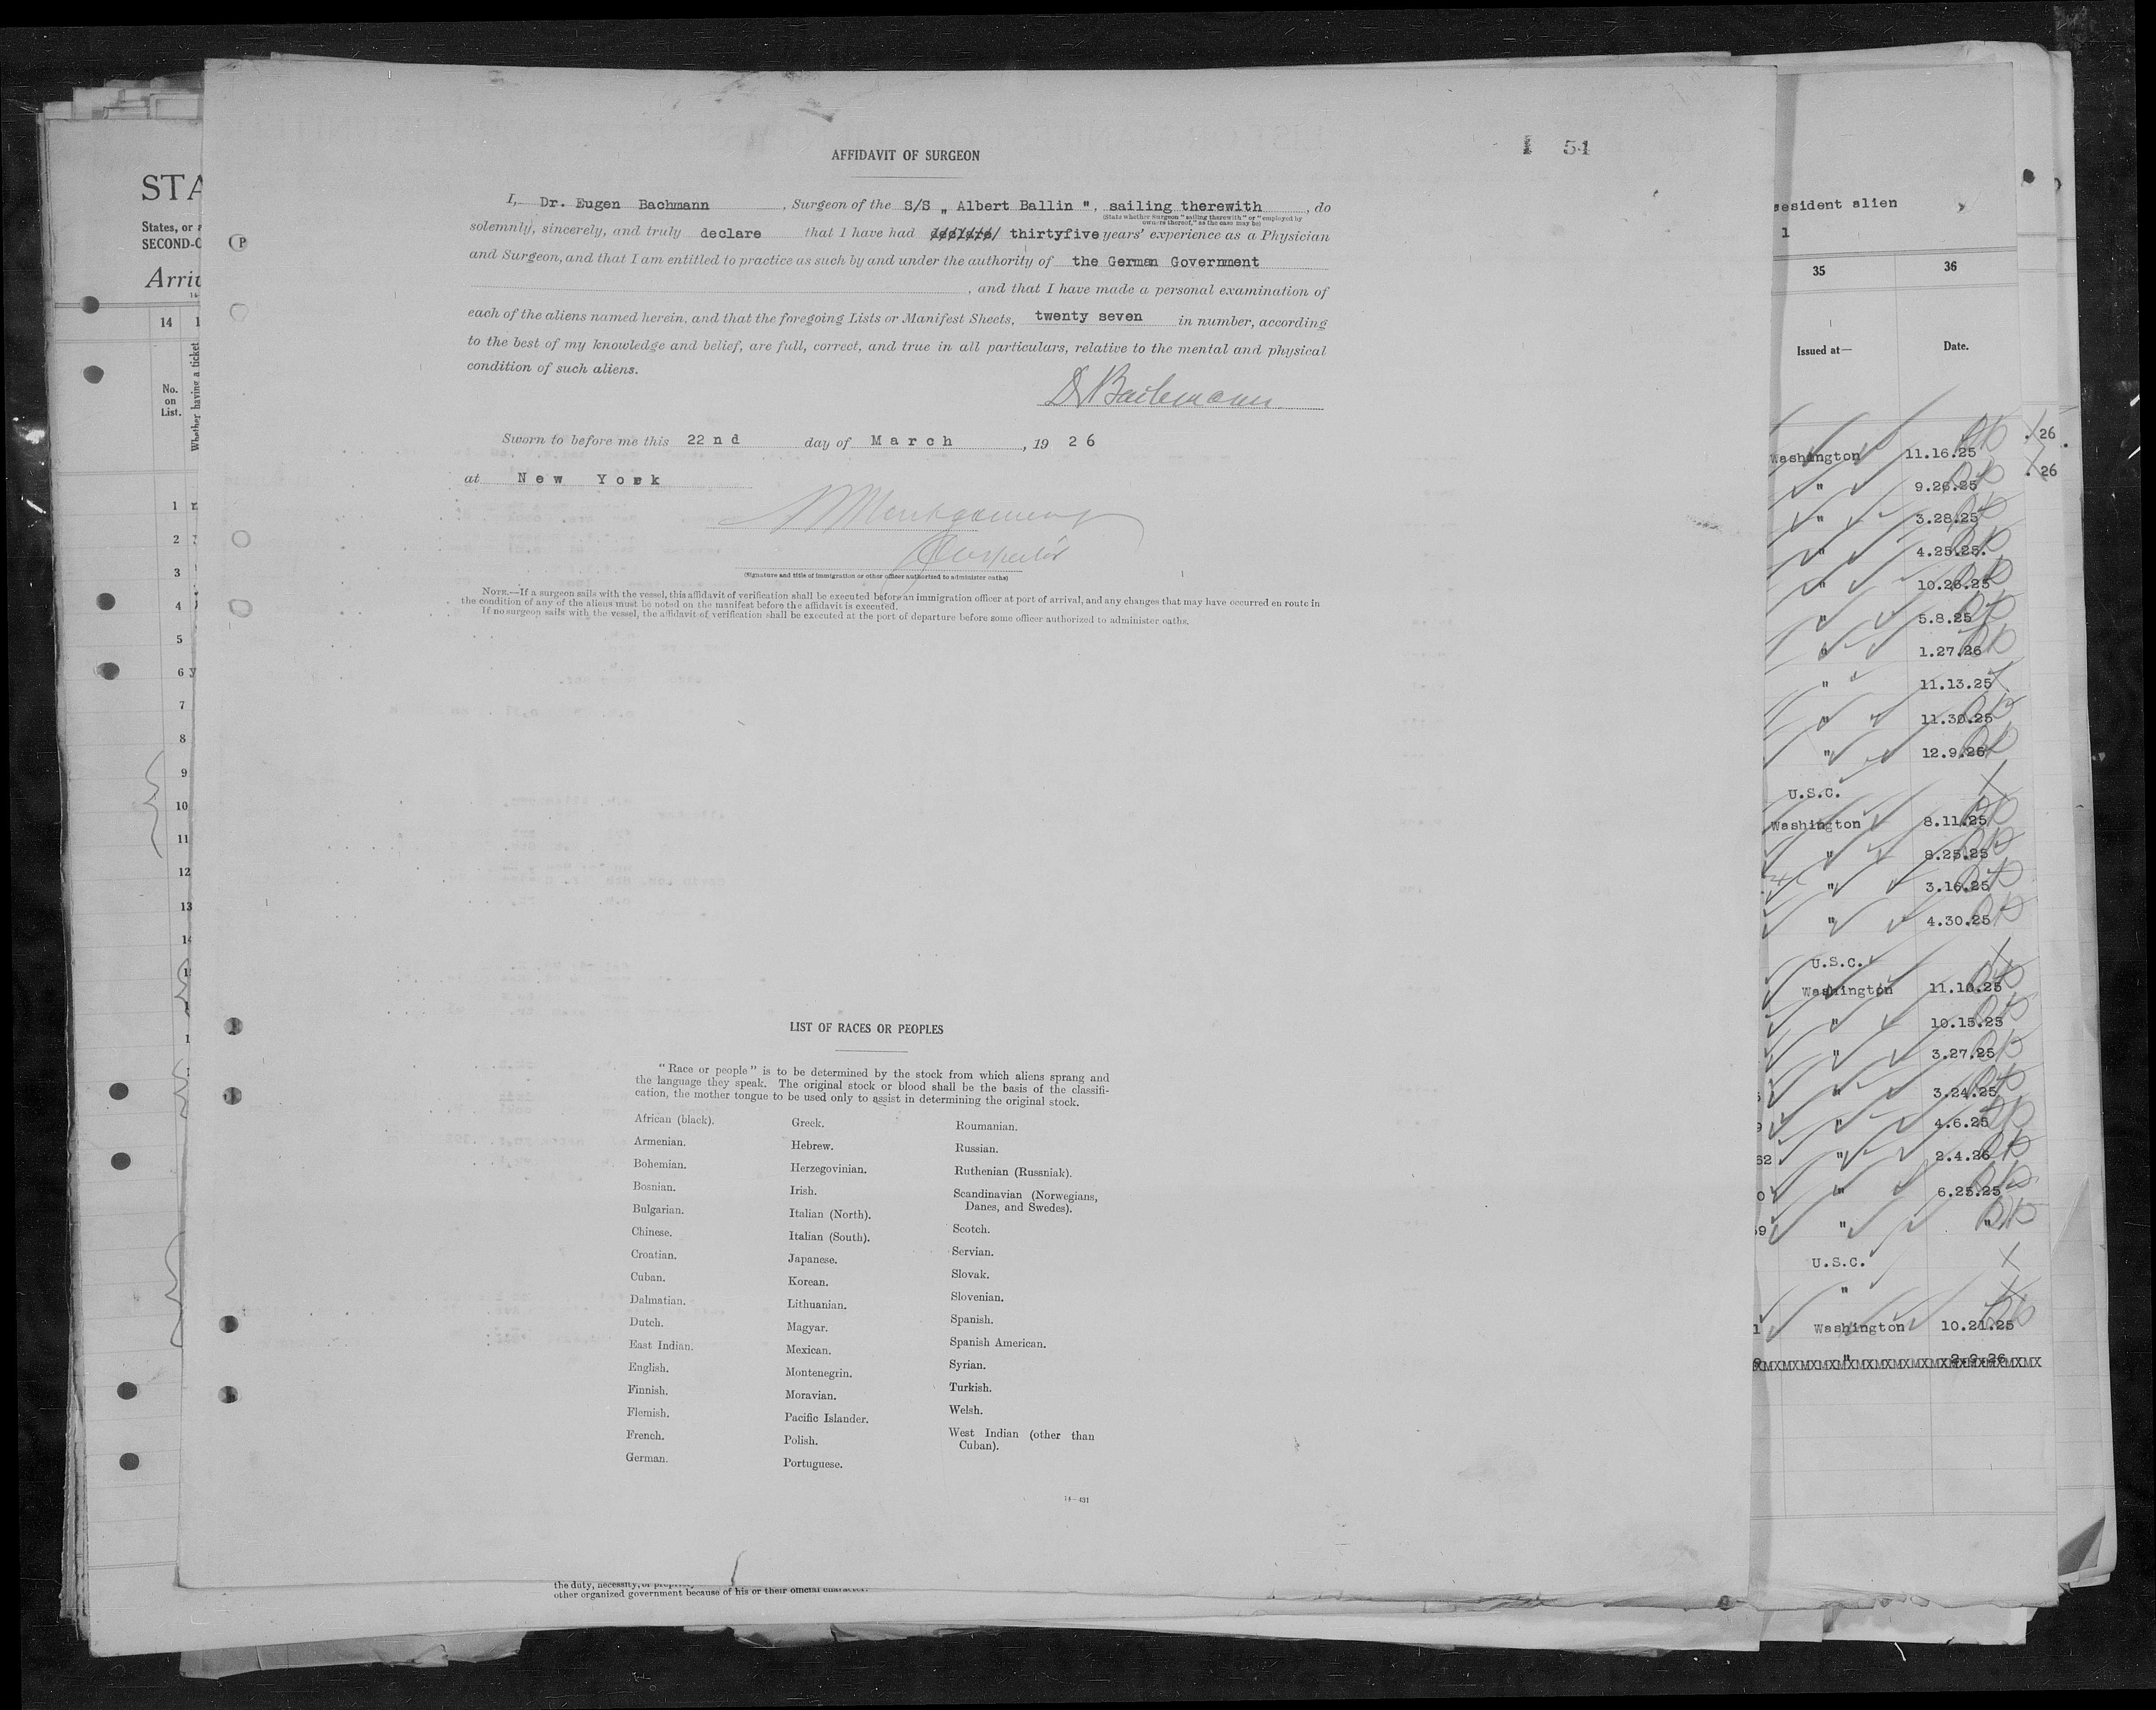 AFFIDAVIT OF SURGEON
51
I, Dr. Eugen Bachmann, Surgeon of the S/S „ Albert Ballin ", sailing therewith, do
(State whether Surgeon "sailing therewith" or "employed by
owners thereof," as the case may be)
solemnly, sincerely, and truly declare that I have had thirtyfive years' experience as a Physician
and Surgeon, and that I am entitled to practice as such by and under the authority of the German Government
, and that I have made a personal examination of
each of the aliens named herein, and that the foregoing Lists or Manifest Sheets, twenty seven in number, according
to the best of my knowledge and belief, are full, correct, and true in all particulars, relative to the mental and physical
condition of such aliens.
Dr Bachmann
Sworn to before me this 22nd day of March, 1926
at New York
Montgomery
Inspector
(Signature and title of immigration or other officer authorized to administer oaths)
NOTE.—If a surgeon sails with the vessel, this affidavit of verification shall be executed before an immigration officer at port of arrival, and any changes that may have occurred en route in
the condition of any of the aliens must be noted on the manifest before the affidavit is executed.
If no surgeon sails with the vessel, the affidavit of verification shall be executed at the port of departure before some officer authorized to administer oaths.
LIST OF RACES OR PEOPLES
"Race or people" is to be determined by the stock from which aliens sprang and
the language they speak. The original stock or blood shall be the basis of the classifi-
cation, the mother tongue to be used only to assist in determining the original stock.
African (black).
Armenian.
Bohemian.
Bosnian.
Bulgarian.
Chinese.
Croatian.
Cuban.
Dalmatian.
Dutch.
East Indian.
English.
Finnish.
Flemish.
French.
German.
Greek.
Hebrew.
Herzegovinian.
Irish.
Italian (North).
Italian (South).
Japanese.
Korean.
Lithuanian.
Magyar.
Mexican.
Montenegrin.
Moravian.
Pacific Islander.
Polish.
Portuguese.
Roumanian.
Russian.
Ruthenian (Russniak).
Scandinavian (Norwegians,
Danes, and Swedes).
Scotch.
Servian.
Slovak.
Slovenian.
Spanish.
Spanish American.
Syrian.
Turkish.
Welsh.
West Indian (other than
Cuban).
14—431
other organized government because of his or their official character.
STA
States, or
SECOND-C
Arriv
14
No.
on
List.
Whether having a ticket
1
2
3
4
5
6
7
8
9
10
11
12
13
resident alien
1
35 36
Issued at— Date.
Washington 11.16.25
" 9.26.25
" 3.28.25
" 4.25.25.
" 10.26.25
" 5.8.25
" 1.27.26
" 11.13.25
" 11.30.25
" 12.9.25
U.S.C.
Washington 8.11.25
" 8.25.25
" 3.16.25
" 4.30.25
U.S.C.
Washington 11.10.25
" 10.15.25
" 3.27.25
" 3.24.25
" 4.6.25
62 " 2.4.26
" 6.25.25
" "
U.S.C.
"
Washington 10.21.25
" 2.9.26
. 26
. 26